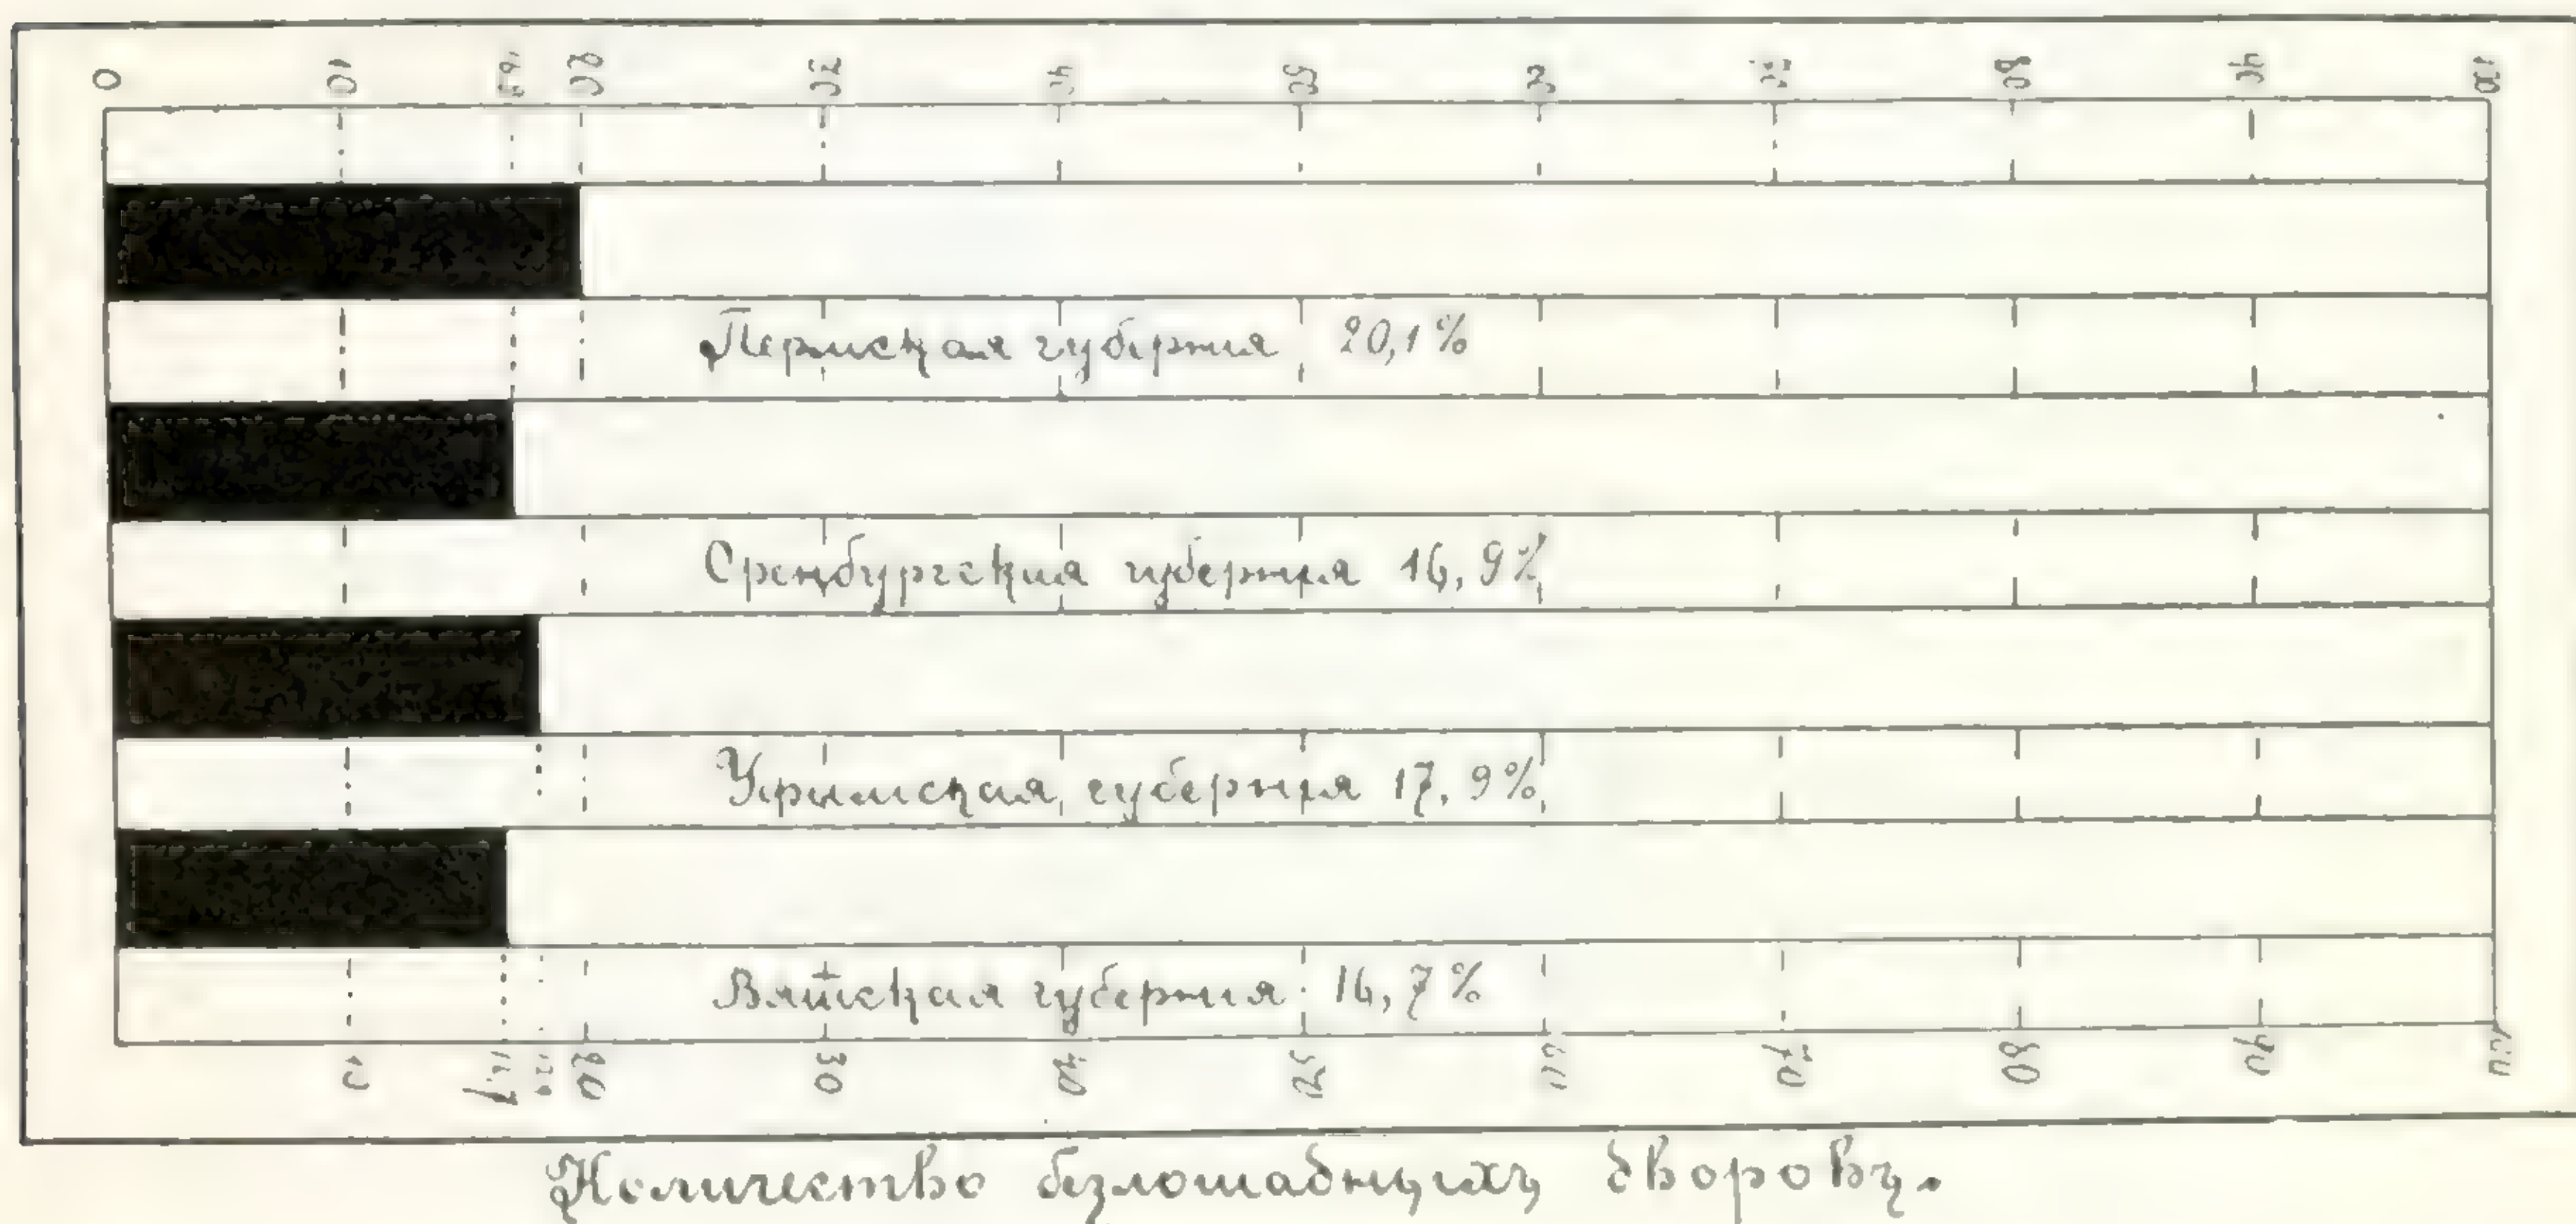 0 10 16,9 20 30 40 50 60 70 80 90 100
Пермская губернія 20,1%
Оренбургская губернія 16,9%
Уфимская губернія 17,9%
Вятская губернія 16,7%
10 16,7 17,9 20 30 40 50 60 70 80 90 100
Количество безлошадныхъ дворовъ.